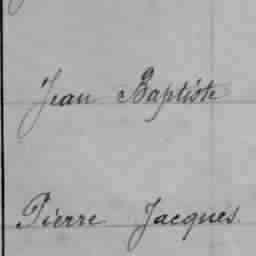 Jean Baptiste
Pierre Jacques